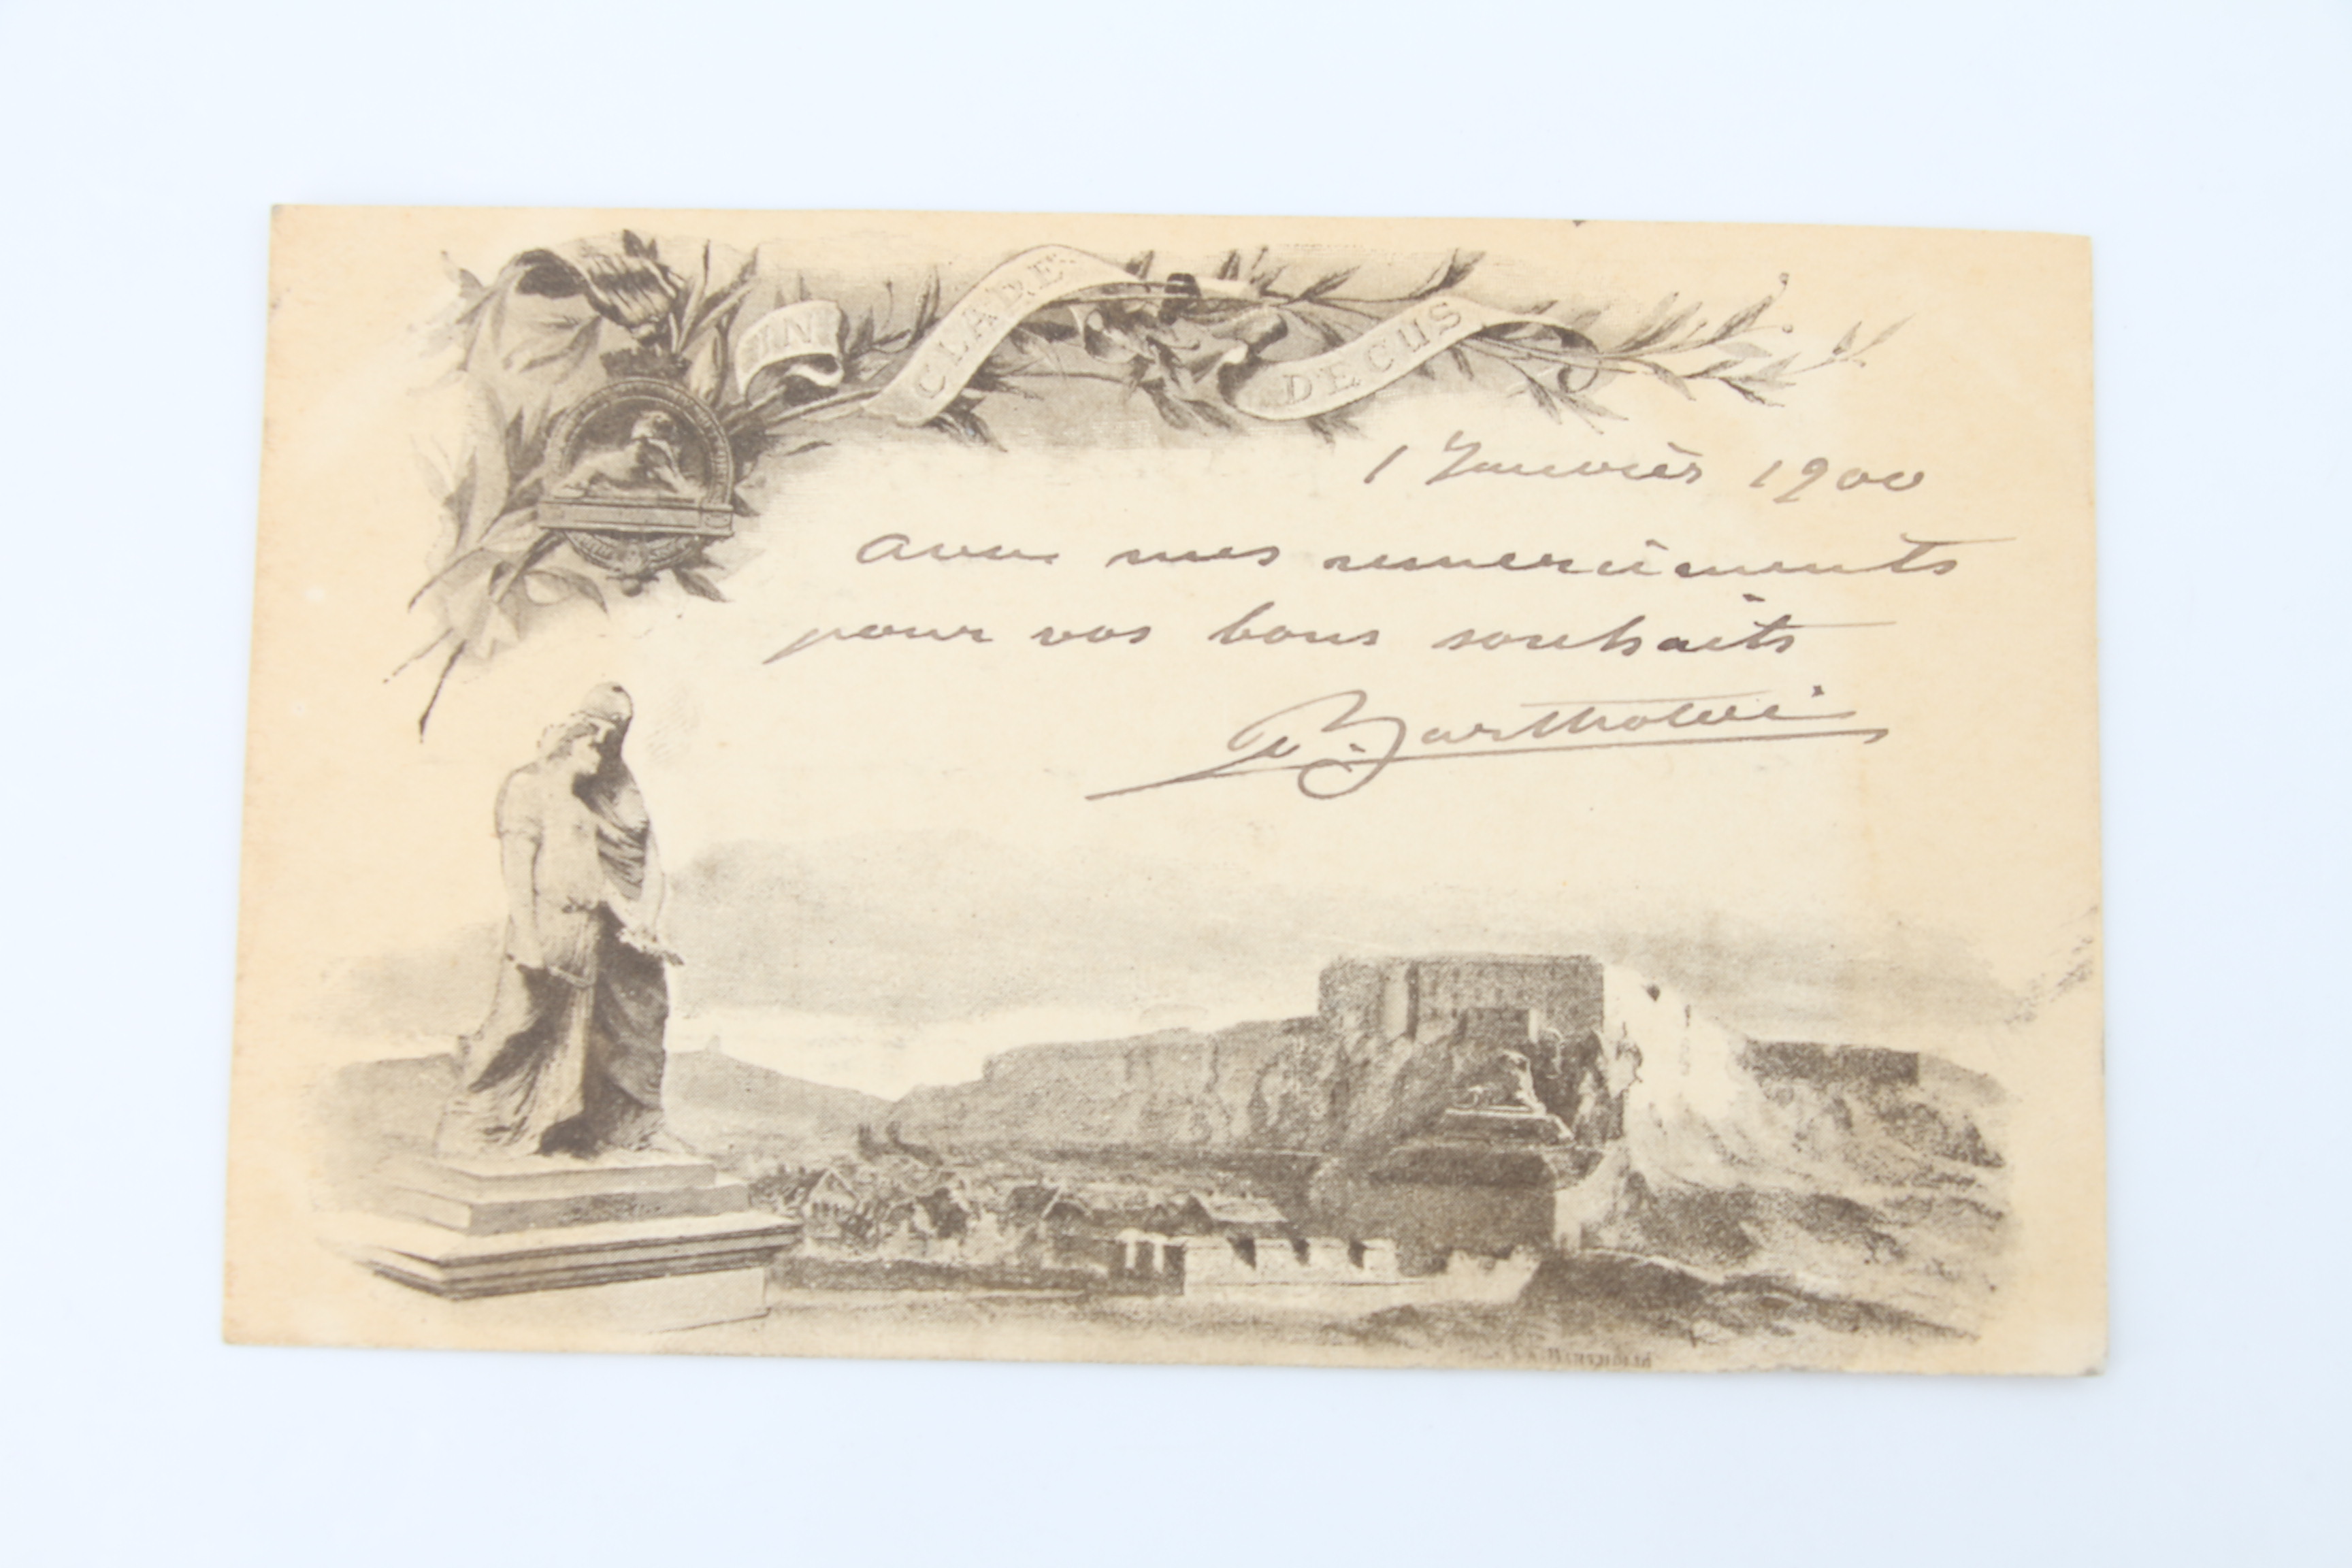 IN CLARE DECUS
1 Janvier 1900
avec mes remerciements
pour vos bons souhaits
Bartholdi